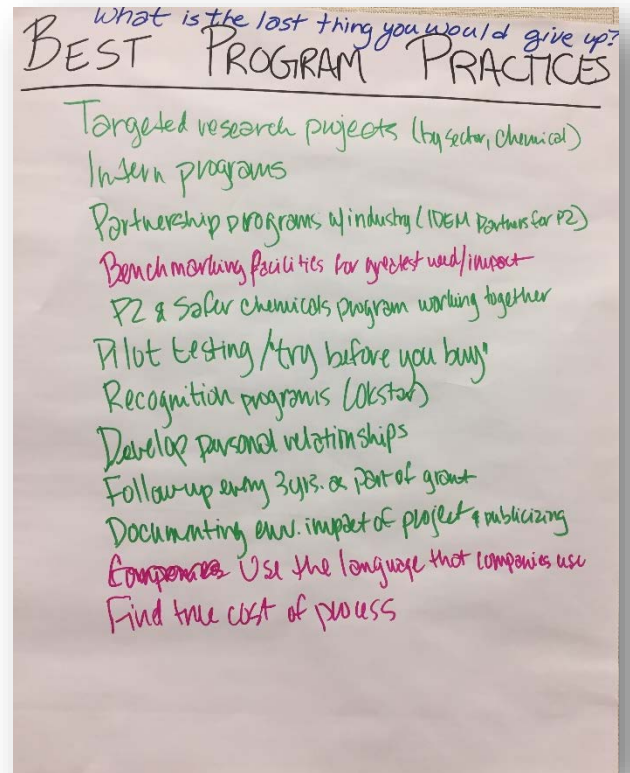 What is the last thing you would give up?
BEST PROGRAM PRACTICES
Targeted research projects (by sector, chemical)
Intern programs
Partnership programs w/industry (IDEM Partners for P2)
Benchmarking facilities for greatest need/impact
P2 & Safer Chemicals program working together
Pilot testing/"try before you buy"
Recognition programs (OKstar)
Develop personal relationships
Follow-up every 3yrs. as part of grant
Documenting env. impact of project & publicizing
Companies Use the language that companies use
Find true cost of process